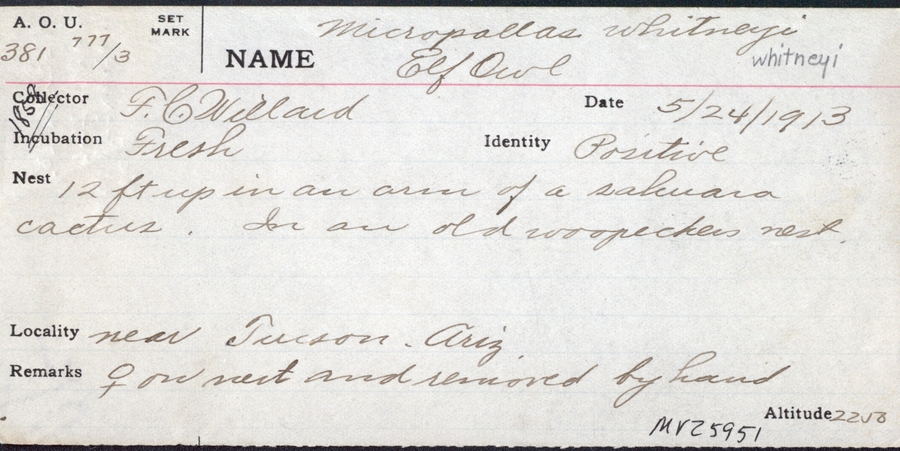 A. O. U. SET MARK
381 777/3
NAME Micropallas whitneyi
Elf Owl whitneyi
Collector F. C. Willard Date 5/24/1913
Incubation Fresh Identity Positive
Nest 12 ft up in an arm of a sahuara
cactus. In an old woopeckers nest.
Locality near Tucson. Ariz.
Remarks ♀ on nest and removed by hand
Altitude 2250
MVZ5951